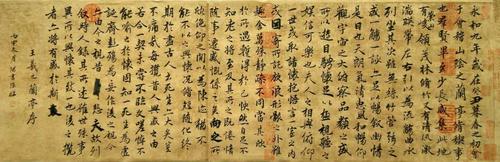 永和九年歲在癸丑暮春之初會
于會稽山陰之蘭亭脩禊事
也群賢畢至少長咸集此地
有崇山峻領茂林脩竹又有清流激
湍暎帶左右引以為流觴曲水
列坐其次雖無絲竹管弦之
盛一觴一詠亦足以暢敘幽情
是日也天朗氣清惠風和暢仰
觀宇宙之大俯察品類之盛
所以遊目騁懷足以極視聽之
娛信可樂也夫人之相與俯仰
一世或取諸懷抱悟言一室之內
或因寄所託放浪形骸之外雖
趣舍萬殊靜躁不同當其欣
於所遇蹔得於己怏然自足不
知老之將至及其所之既惓情
隨事遷感慨係之矣向之所
欣俛仰之閒以為陳迹猶不
能不以之興懷況脩短隨化終
期於盡古人云死生亦大矣豈
不痛哉每攬昔人興感之由
若合一契未嘗不臨文嗟悼不
能喻之於懷固知一死生為虛
誕齊彭殤為妄作後之視今
亦由今之視昔悲夫故列
敘時人錄其所述雖世殊事
異所以興懷其致一也後之攬
者亦將有感於斯文
王羲之蘭亭序